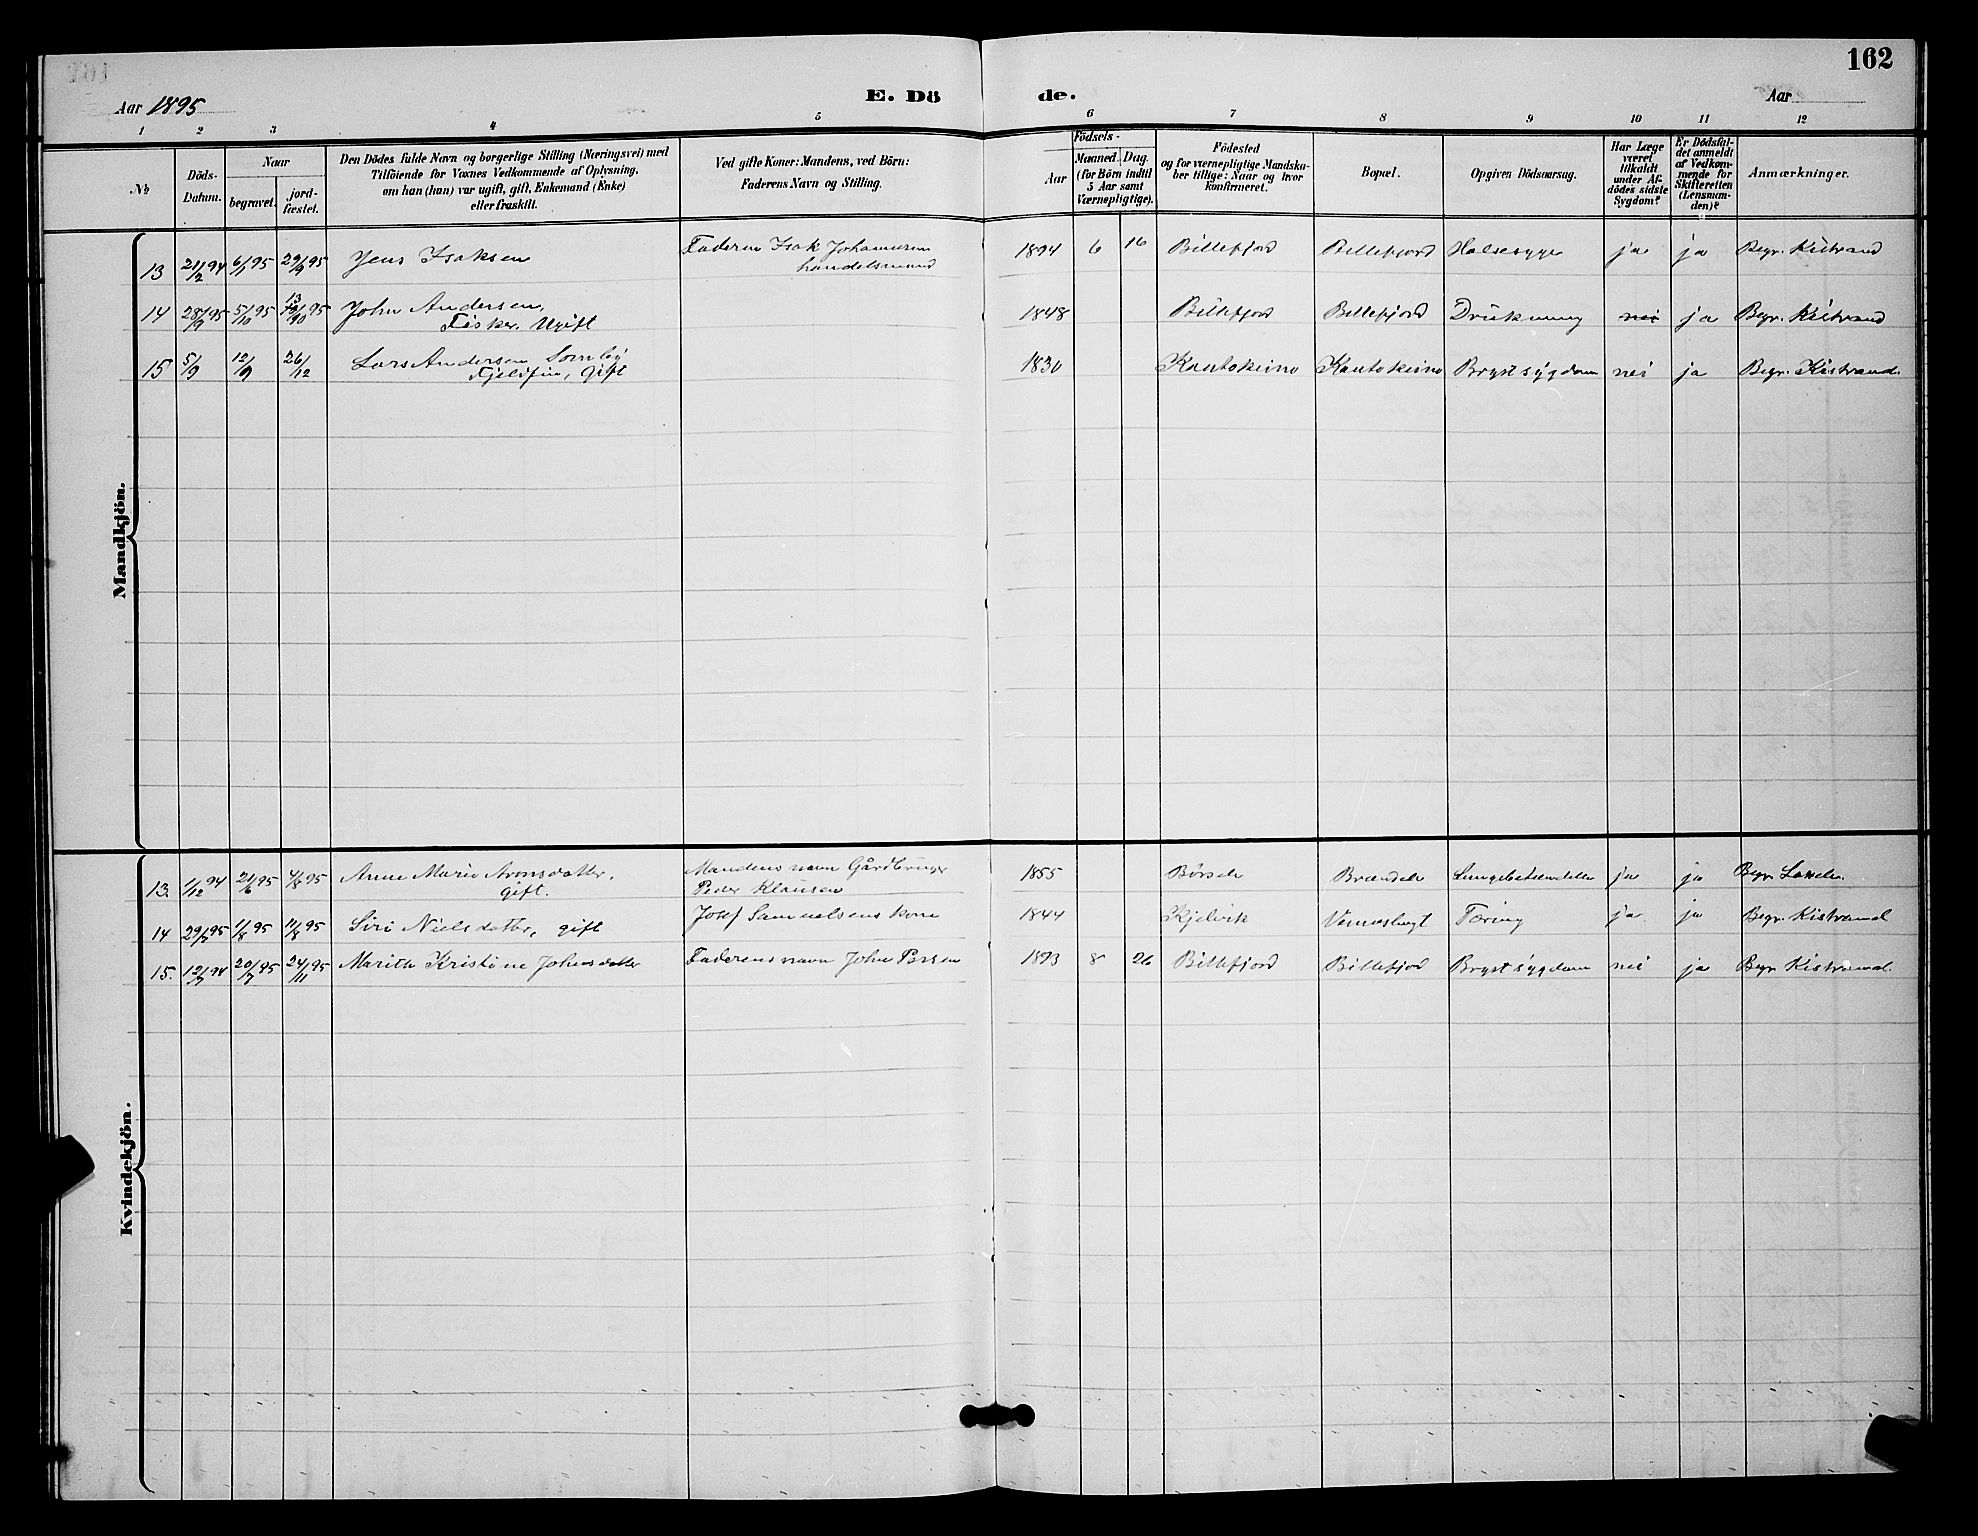 162
Aar 1895
E. Dö de.
Aar
1 2 3 4 5 6 7 8 9 10 11 12
No
Döds-Datum.
Naar
begravet.
jord-fæstet.
Den Dödes fulde Navn og borgerlige Stilling (Næringsvei) med
Tilföiende for Voxnes Vedkommende af Oplysning,
om han (hun) var ugift, gift, Enkemand (Enke)
eller fraskilt.
Ved gifte Koner: Mandens, ved Börn:
Faderens Navn og Stilling.
Födsels-
Aar
Maaned. Dag.
(for Börn indtil
5 Aar samt
Værnepligtige).
Födested
og for værnepligtige Mandska-
ber tillige: Naar og hvor
konfirmeret.
Bopæl.
Opgiven Dödsaarsag.
Har Læge
været
tilkaldt
under Af-
dödes sidste
Sygdom?
Er Dödsfal-
det anmeldt
af Vedkom-
mende for
Skifteretten
(Lensman-
den)?
Anmærkninger.
Mandkjön.
13 21/2 94 6/1 95 29/9 95 Jens Isaksen Faderen Isak Johannesen 1894 6 16 Billefjord Billefjord Halsesyge ja ja Begr. Kistrand
handelsmand
14 28/9 95 5/10 95 13/10 95 John Andersen, 1848 Billefjord Billefjord Drukning nei ja Begr. Kistrand
Fisker, Ugift
15 5/9 12/9 26/12 Lars Andersen Somby 1830 Kautokeino Kautokeino Brystsygdom nei ja Begr. Kistrand.
Fjeldfin, Gift
Kvindekjön.
13. 1/12 94 21/6 95 4/8 95 Anne Marie Aronsdatter, Mandens navn Gårdbruger 1855 Börselv Brændelv ja ja Begr.
gift. Peder Klausen
14 29/7 95 1/8 95 11/8 95 Siri Nielsdatter, gift Josef Samuelsens kone 1844 Kjelvik Tæring ja ja Begr. Kistrand
15. 12/7 94 20/7 95 24/11 95 Marith Kristine Johnsdatter Faderens navn John Persen 1893 8 26 Billefjord Billefjord Brystsygdom nei ja Begr. Kistrand.